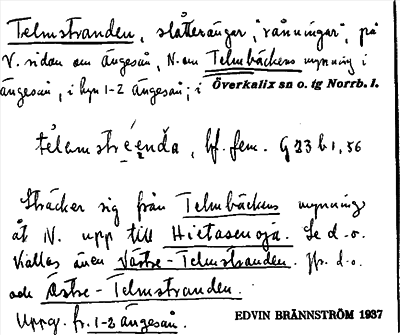 Telmstranden, slåtterängar, "rånningar", på
V. sidan om ängesån, N. om Telmbäckens mynning i
ängesån, i byn 1-2 ängesån; i Överkalix sn o. tg Norrb. l.
bf. fem. G 23 b 1, 56
Sträcker sig från Telmbäckens mynning
åt N. upp till Hietasenoja. Se d.o.
Kallas även Västre-Telmstranden. Jfr. d.o.
och Östre-Telmstranden.
Uppg. fr. 1-2 ängesån. EDVIN BRÄNNSTRÖM 1937